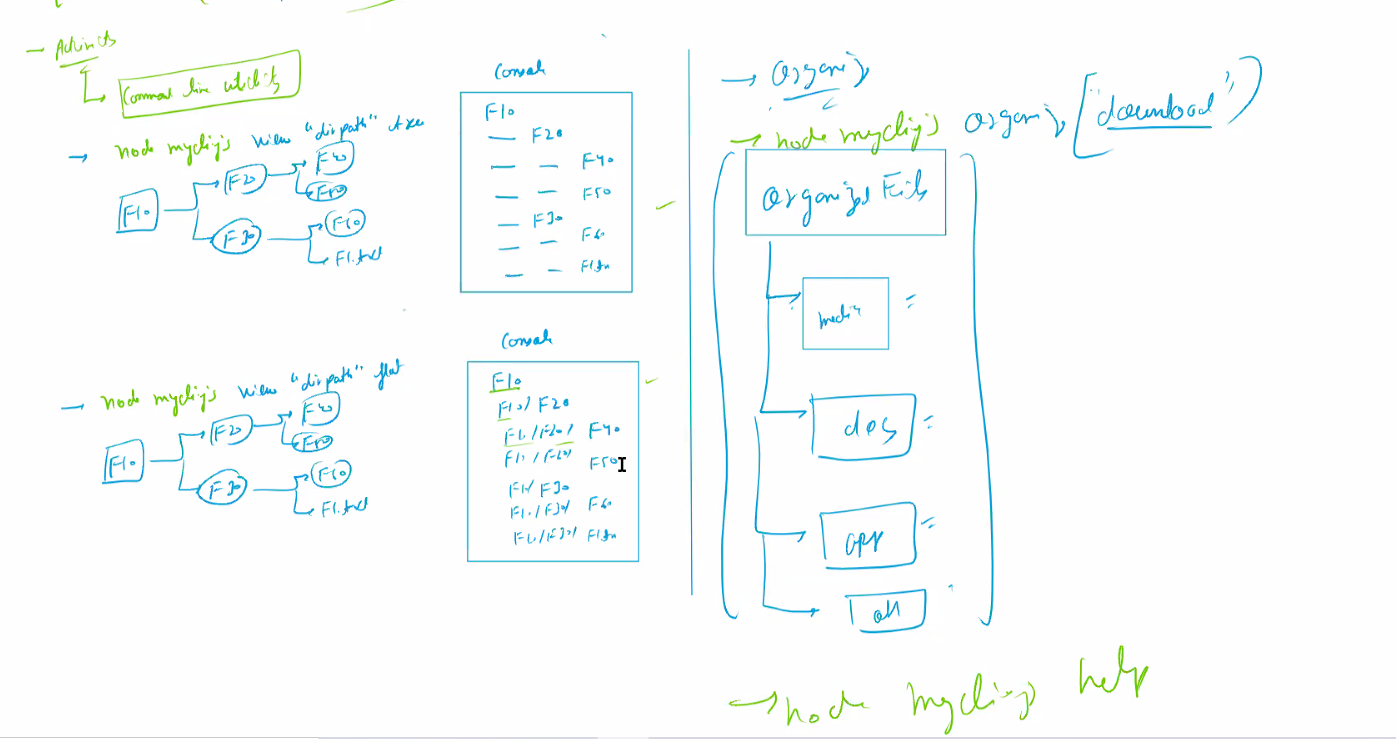 Activity
Command line utility
node mycli.js view "dirpath" tree
F10
F20
F40
F50
F30
F60
F1.txt
Console
F10
F20
F40
F50
F30
F60
node mycli.js view "dirpath" flat
F10
F20
F40
F50
F30
F1.txt
Console
F10
F10/F20
F40
F50
F30
F60
organize
node mycli.js organize "download"
organized Files
media
docs
app
node mycli.js help